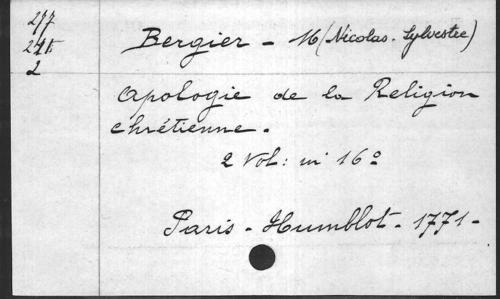 217
Bergier - M (Nicolas-Sylvestre)
2
Apologie de la Religion
chrétienne.
2 Vol: in 16º
Paris - Humblot - 1771 -